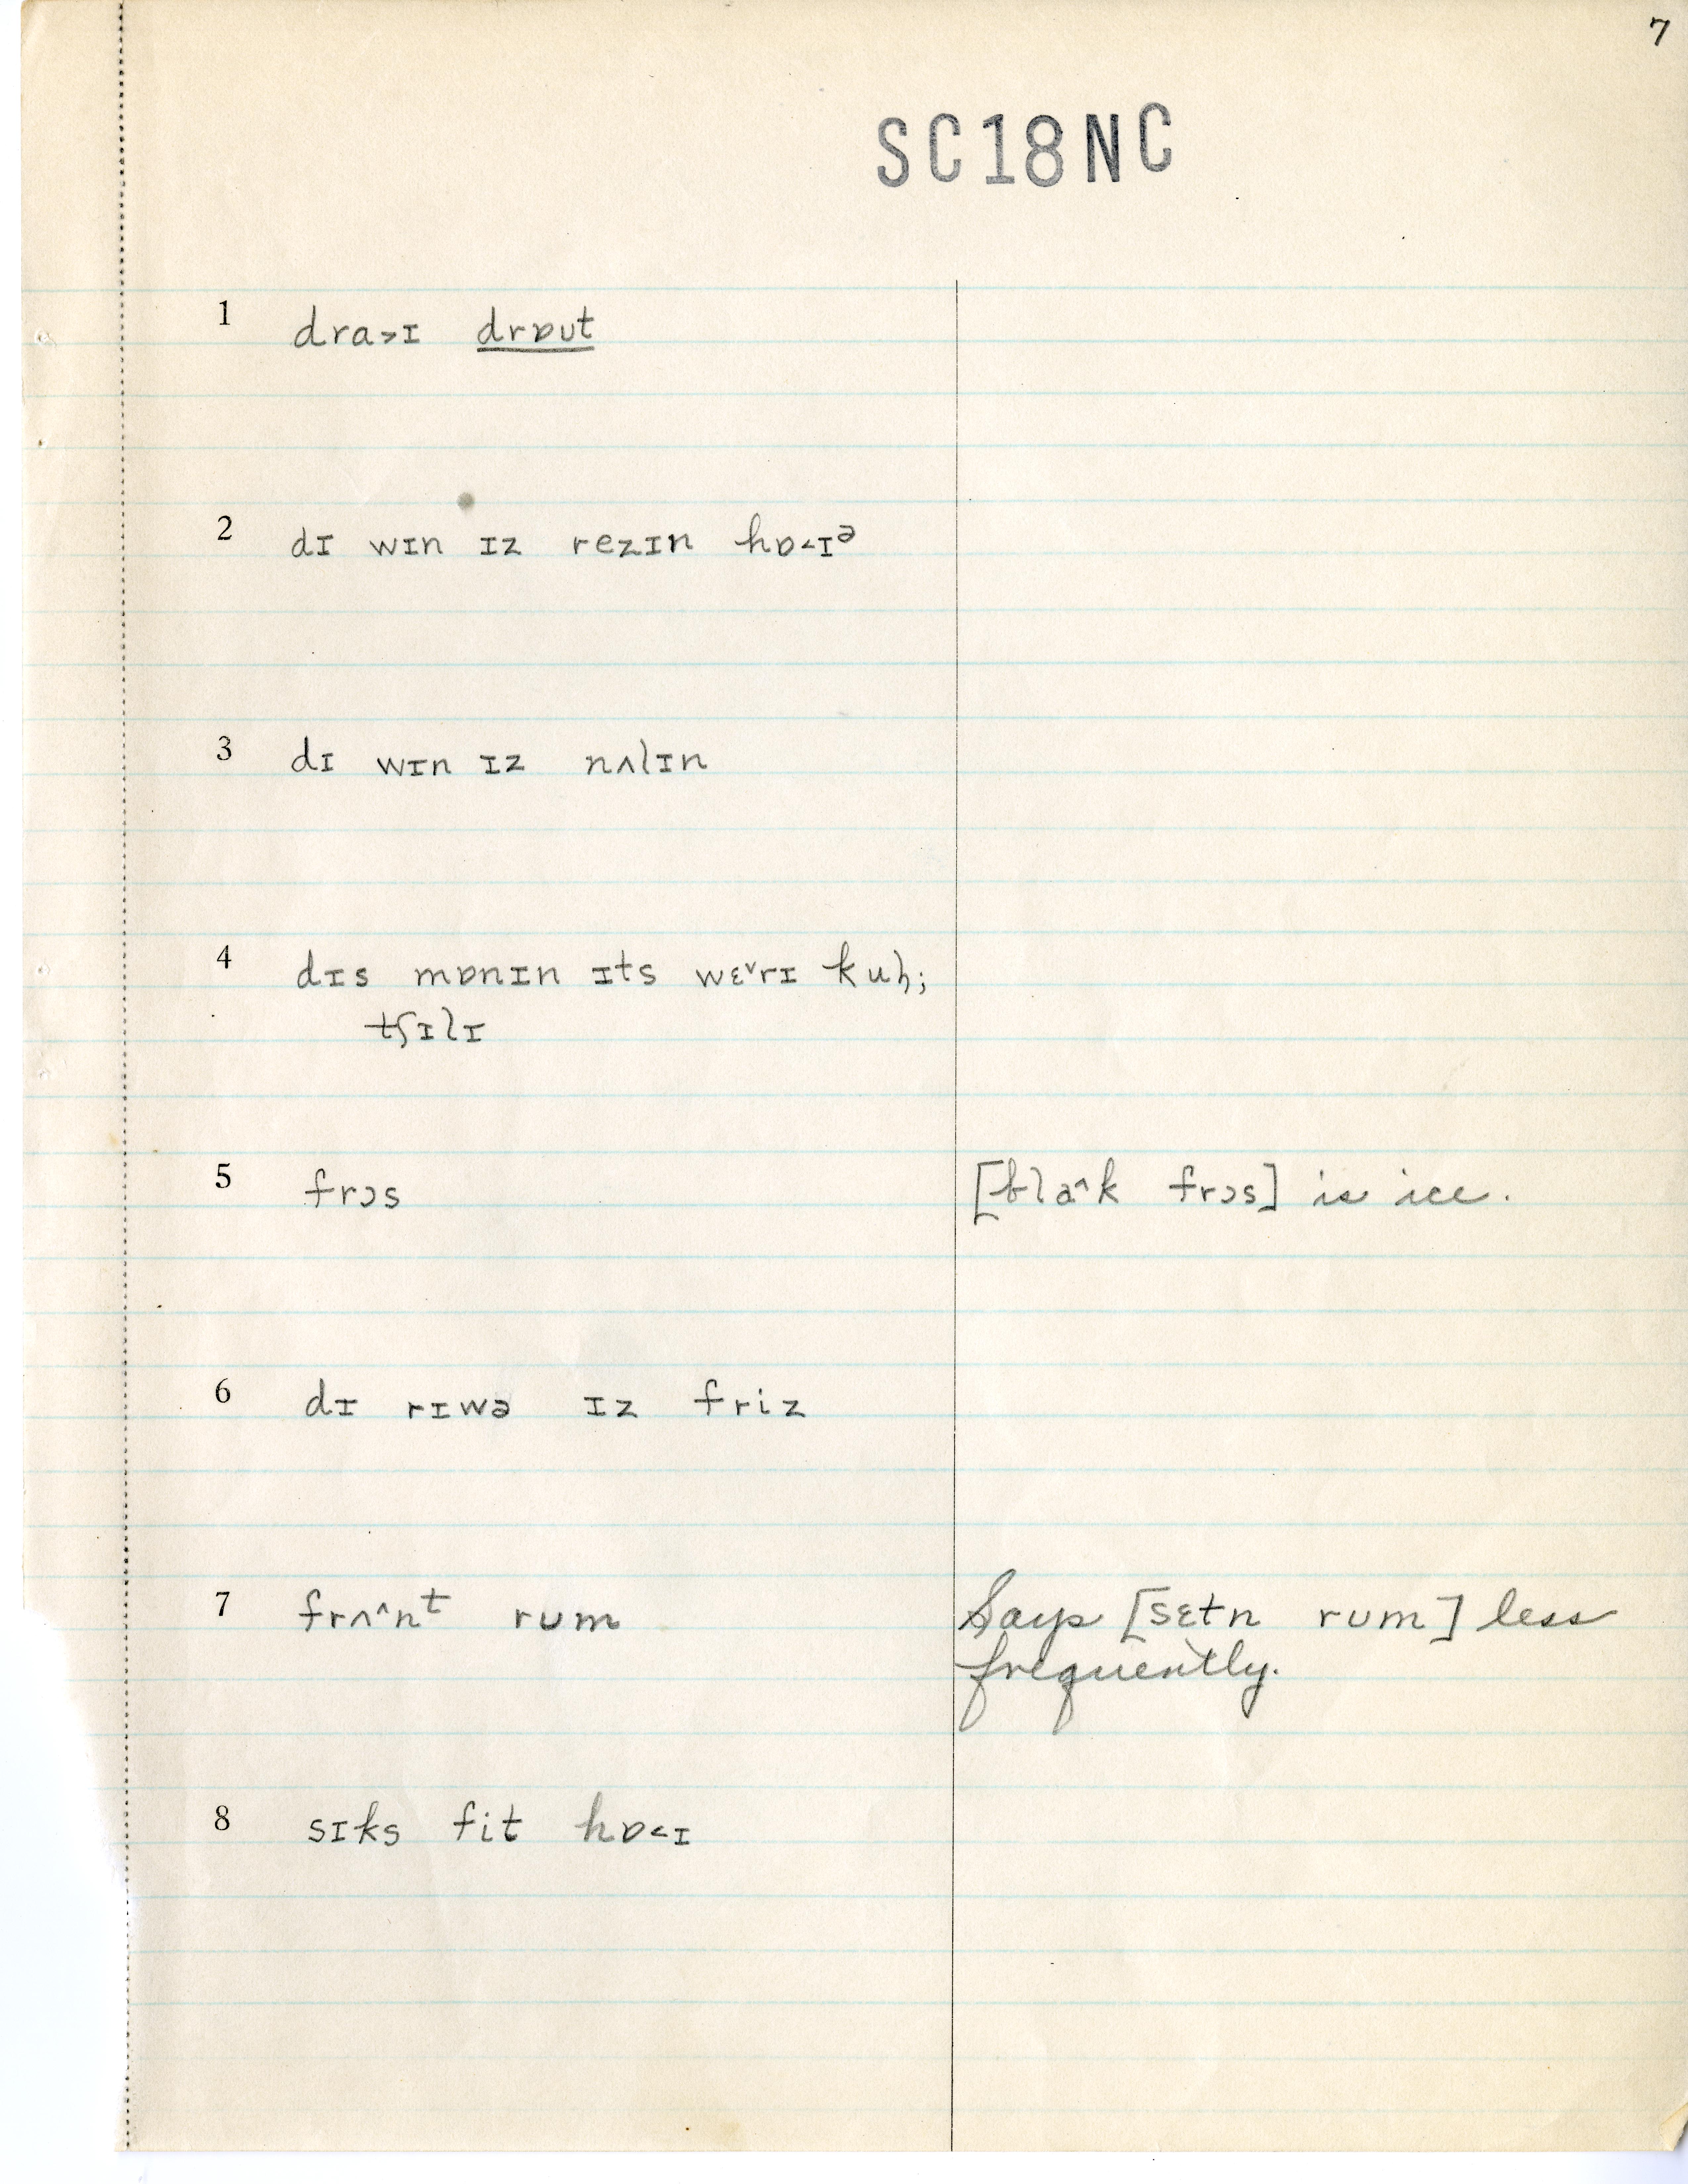 7
SC18NC
1 dra˃ɪ drɒut
2 dɪ wɪn ɪz rezɪn hɒ˂ɪᵊ
3 dɪ wɪn ɪz nʌlɪn
4 dɪs mɒnɪn ɪts wɛ˅rɪ
tʃɪlɪ
5 frɔs [bla˄k frɔs] is ice.
6 dɪ rɪwə ɪz friz
7 frʌ˄nᵗ rum Says [sɛtn rum] less
frequently.
8 sɪks fit hɒ˂ɪ